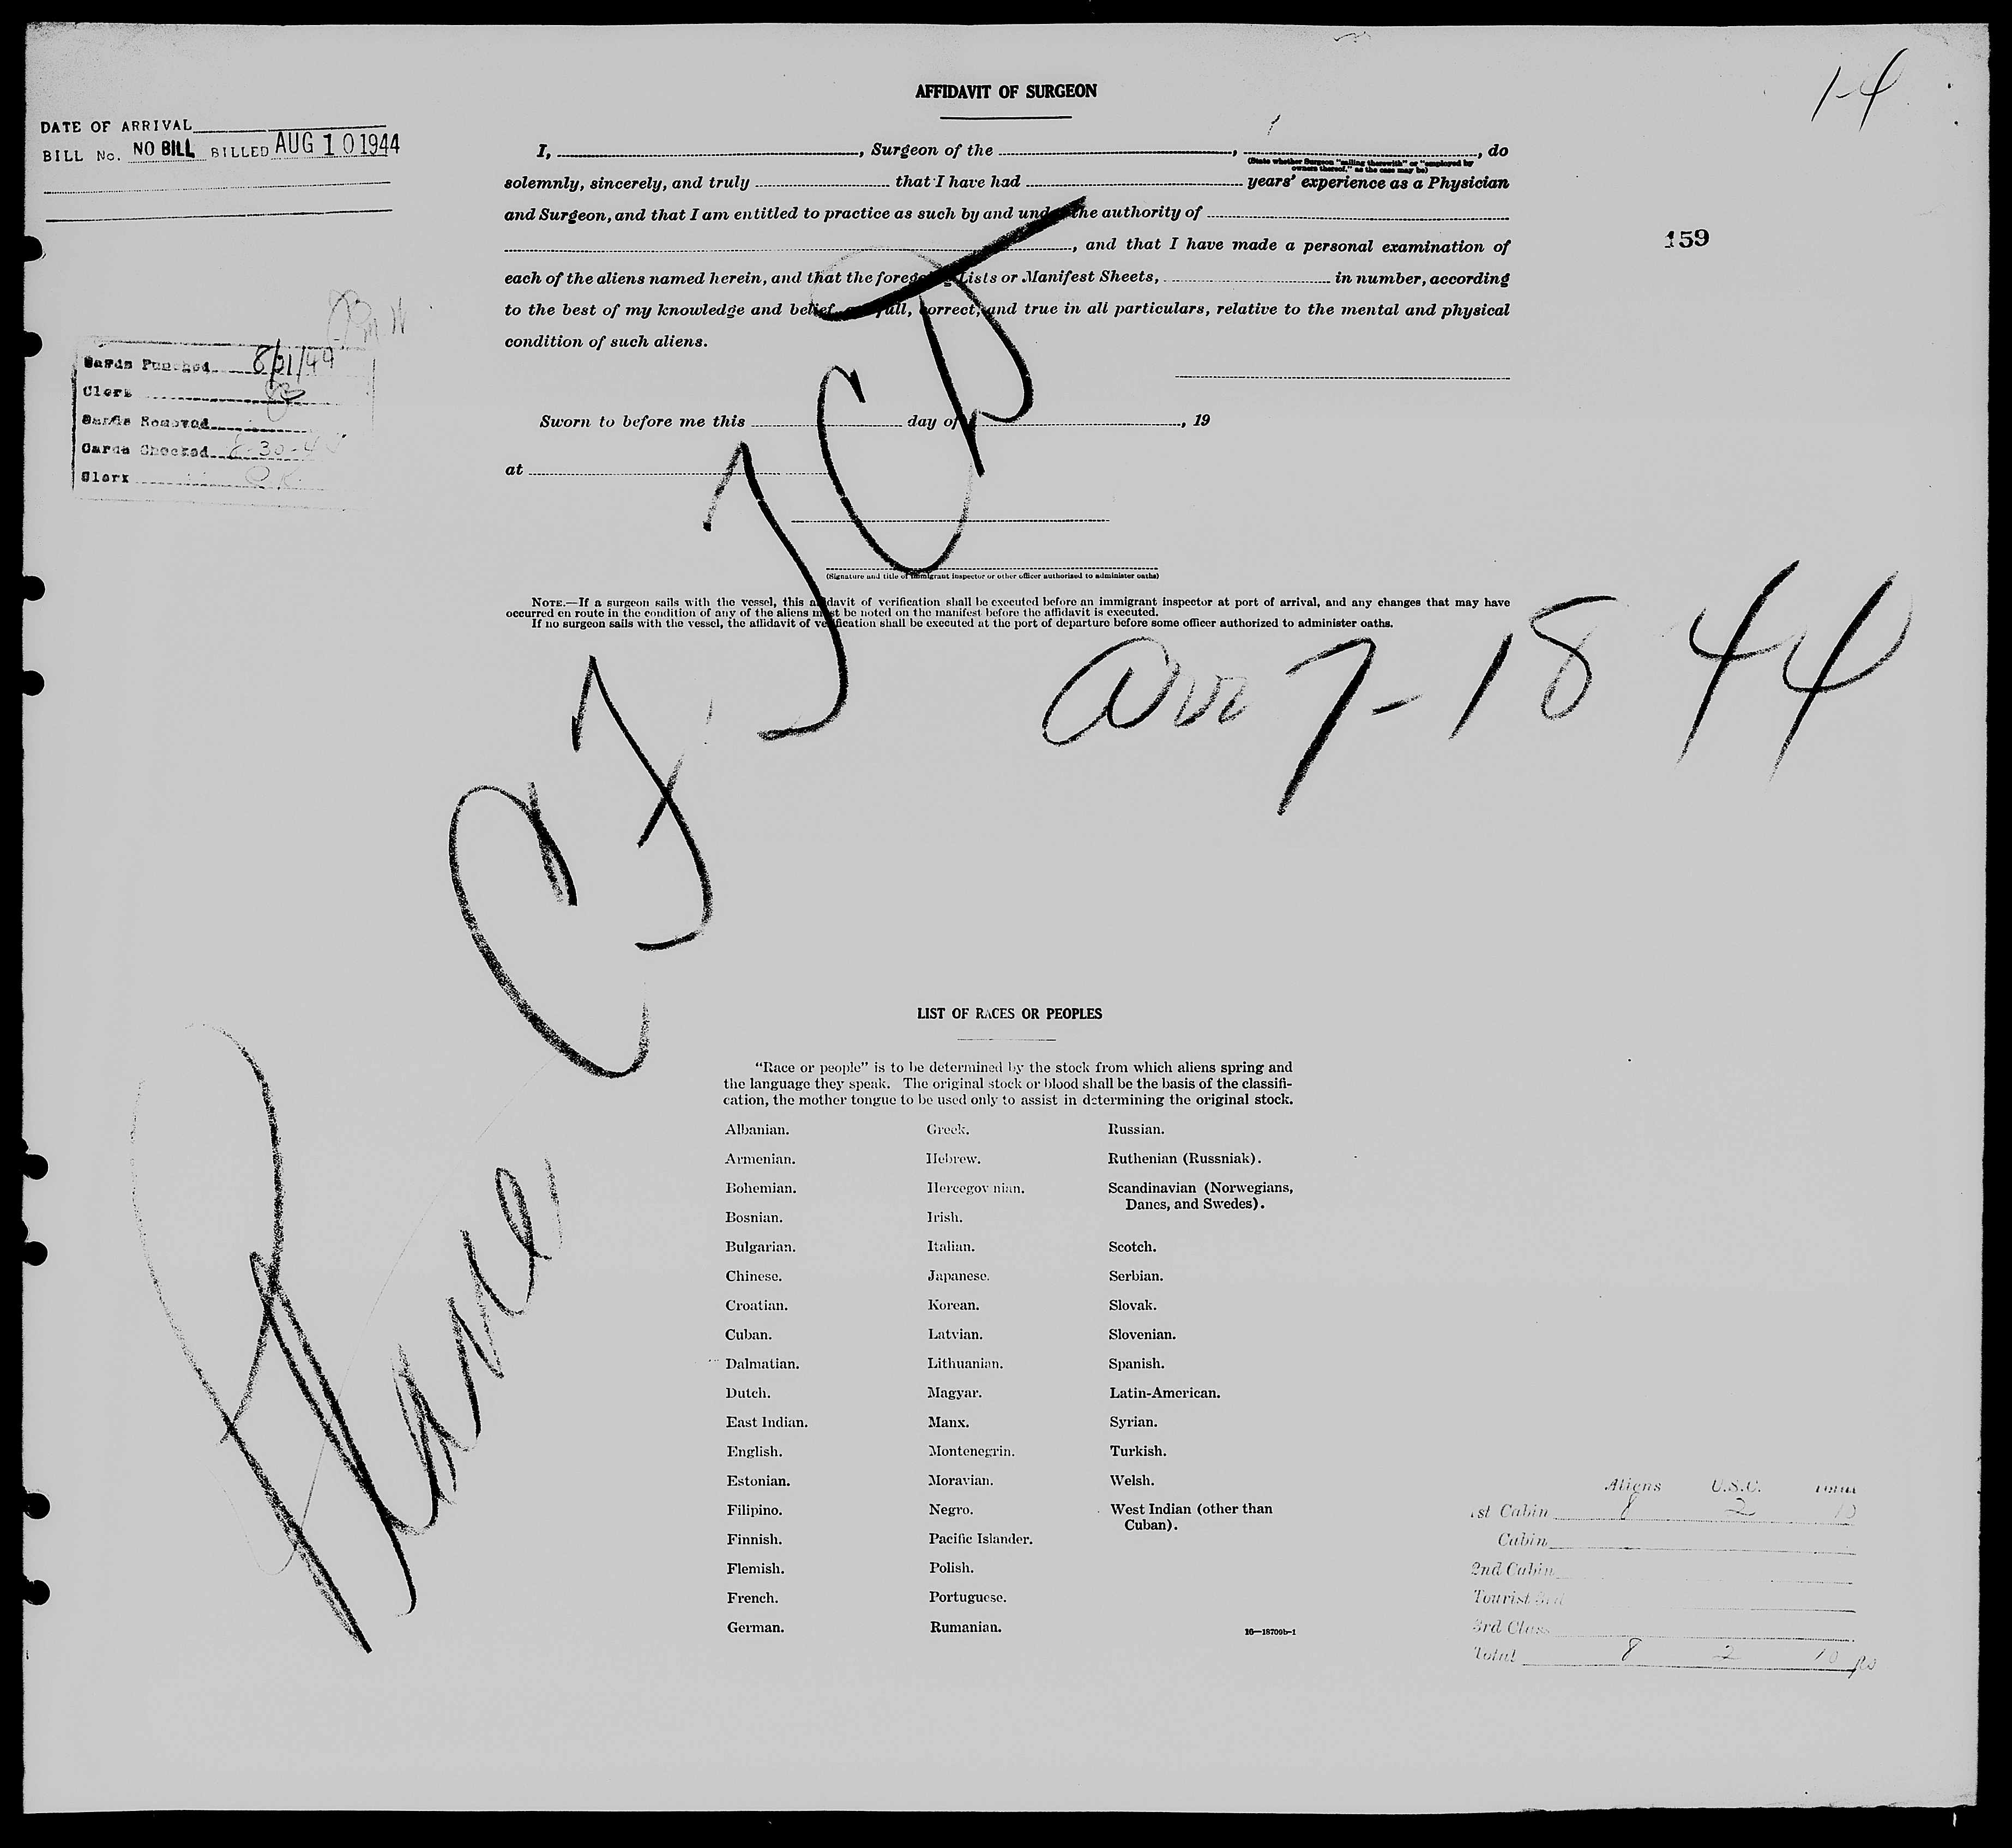 1-4
AFFIDAVIT OF SURGEON
DATE OF ARRIVAL
BILL No. NO BILL BILLED AUG 10 1944
I, , Surgeon of the , , do
(State whether Surgeon "sailing therewith" or "employed by
owners thereof," as the case may be)
solemnly, sincerely, and truly that I have had years' experience as a Physician
and Surgeon, and that I am entitled to practice as such by and under the authority of
159
, and that I have made a personal examination of
each of the aliens named herein, and that the foregoing Lists or Manifest Sheets, in number, according
to the best of my knowledge and belief, are full, correct, and true in all particulars, relative to the mental and physical
condition of such aliens.
Cards Punched 8/21/44
Clerk
Cards Removed
Cards Checked 8-30-4
Clerk
Sworn to before me this day of , 19
at
(Signature and title of immigrant inspector or other officer authorized to administer oaths)
NOTE.—If a surgeon sails with the vessel, this affidavit of verification shall be executed before an immigrant inspector at port of arrival, and any changes that may have
occurred en route in the condition of any of the aliens must be noted on the manifest before the affidavit is executed.
If no surgeon sails with the vessel, the affidavit of verification shall be executed at the port of departure before some officer authorized to administer oaths.
7-18 44
Plane
LIST OF RACES OR PEOPLES
"Race or people" is to be determined by the stock from which aliens spring and
the language they speak. The original stock or blood shall be the basis of the classifi-
cation, the mother tongue to be used only to assist in determining the original stock.
Albanian. Greek. Russian.
Armenian. Hebrew. Ruthenian (Russniak).
Bohemian. Hercegovnian. Scandinavian (Norwegians,
Danes, and Swedes).
Bosnian. Irish.
Bulgarian. Italian. Scotch.
Chinese. Japanese. Serbian.
Croatian. Korean. Slovak.
Cuban. Latvian. Slovenian.
Dalmatian. Lithuanian. Spanish.
Dutch. Magyar. Latin-American.
East Indian. Manx. Syrian.
English. Montenegrin. Turkish.
Estonian. Moravian. Welsh.
Filipino. Negro. West Indian (other than
Cuban).
Finnish. Pacific Islander.
Flemish. Polish.
French. Portuguese.
German. Rumanian.
16—18709b-1
Aliens U.S.C. Total
1st Cabin 8 2 10
Cabin
2nd Cabin
Tourist 3rd
3rd Class
Total 8 2 10